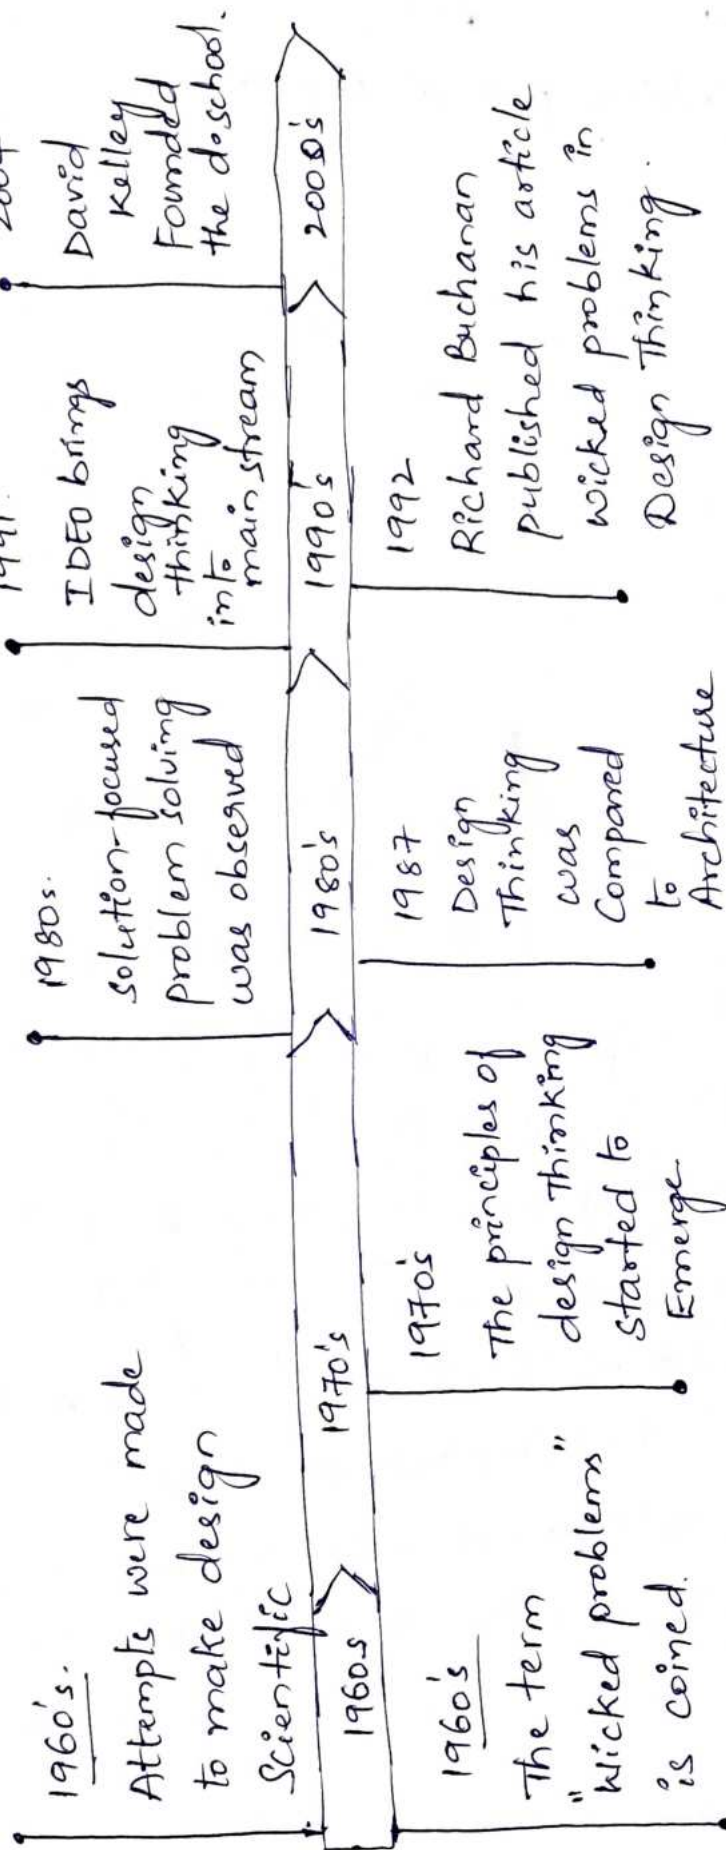 1960's.
Attempts were made
to make design
Scientific
1980s.
Solution-focused
problem solving
was observed
1991.
IDEO brings
design
thinking
into
main stream
David
Kelley
Founded
the d.school.
1960s
1970's
1980's
1990's
2000's
1960's
The term
"Wicked problems"
is coined.
1970's
The principles of
design Thinking
started to
Emerge
1987
Design
Thinking
was
Compared
to
Architecture
1992
Richard Buchanan
published his article
wicked problems in
Design Thinking.